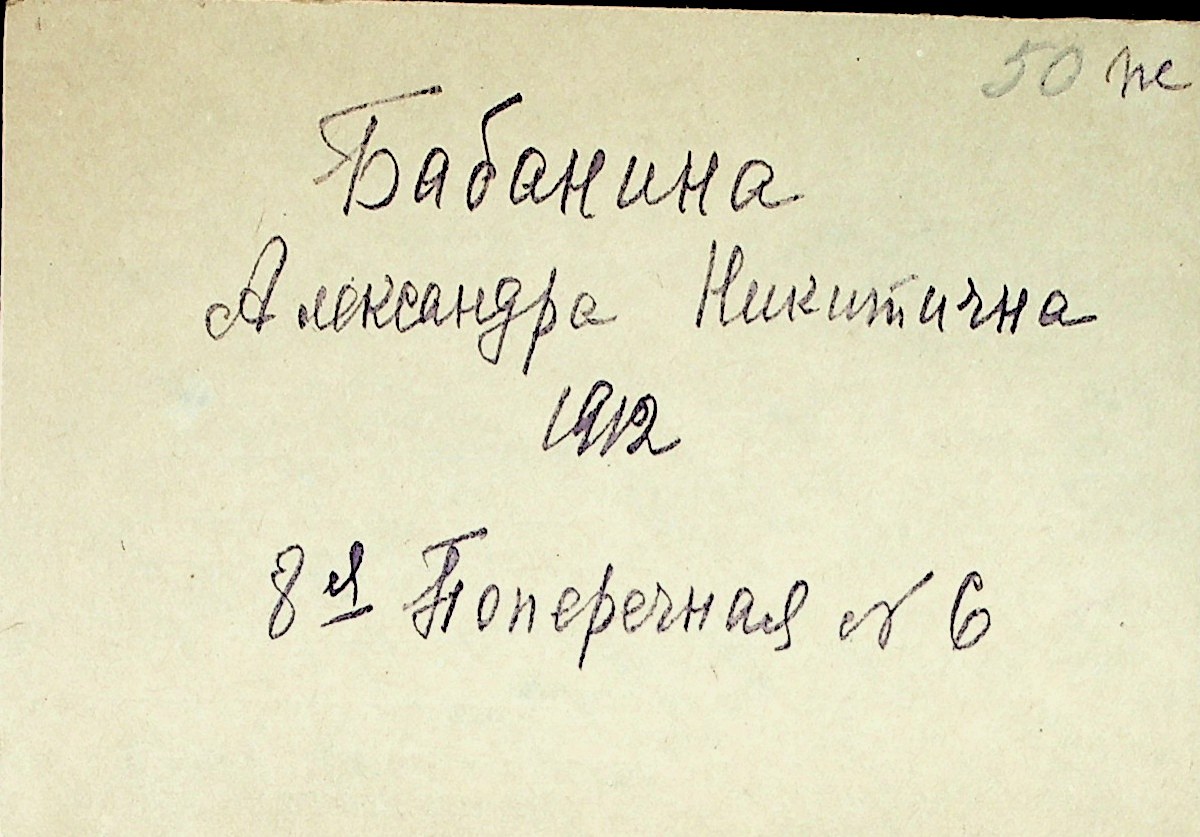 50 пе
Бабанина
Александра Никитична
1912
8я Поперечная № 6